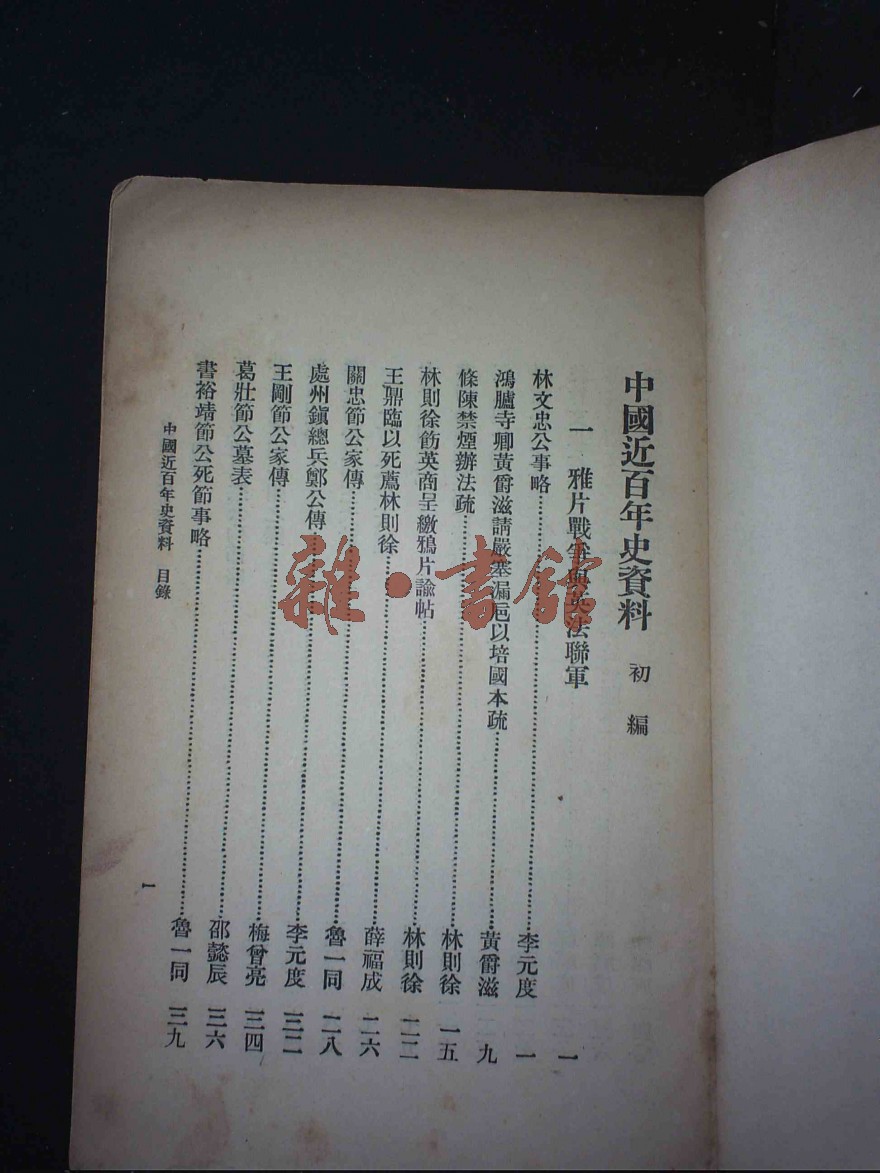 中國近百年史資料 初編
一 雅片戰爭與英法聯軍 一
林文忠公事略 李元度 一
鴻臚寺卿黃爵滋請嚴塞漏巵以培國本疏 黃爵滋 九
條陳禁煙辦法疏 林則徐 一五
林則徐飭英商呈繳鴉片諭帖 林則徐 二二
王鼎臨以死薦林則徐 薛福成 二六
關忠節公家傳 魯一同 二八
處州鎭總兵鄭公傳 李元度 三二
王剛節公家傳 梅曾亮 三四
葛壯節公墓表 邵懿辰 三六
書裕靖節公死節事略 魯一同 三九
中國近百年史資料 目錄
1
雜·書館